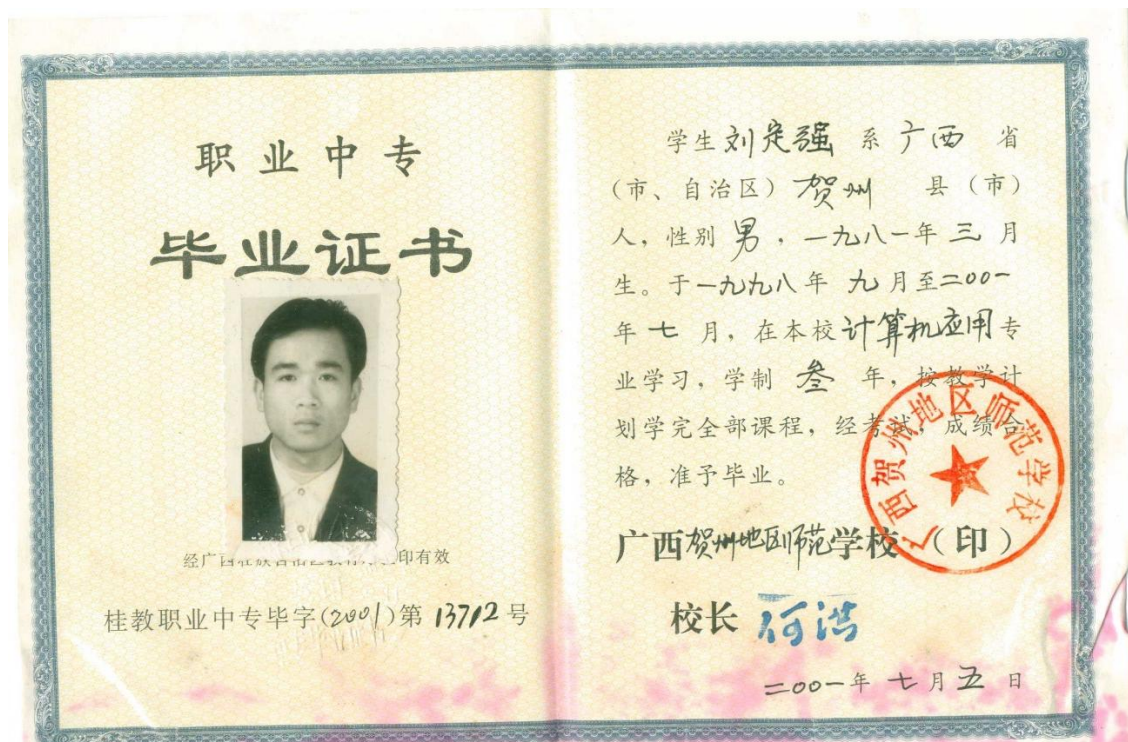 职业中专
毕业证书
经广西壮族自治区教育 印有效
桂教职业中专毕字(2001)第 13712 号
学生 刘定强 系 广西 省
（市、自治区）贺州 县（市）
人，性别 男，一九八一年 三 月
生。于一九九八年 九 月至二00一
年 七 月，在本校 计算机应用 专
业学习，学制 叁 年，按教学计
划学完全部课程，经考试，成绩合
格，准予毕业。
广西贺州地区师范学校（印）
广西贺州地区师范学校
校长 何浩
二00一年 七 月 五 日